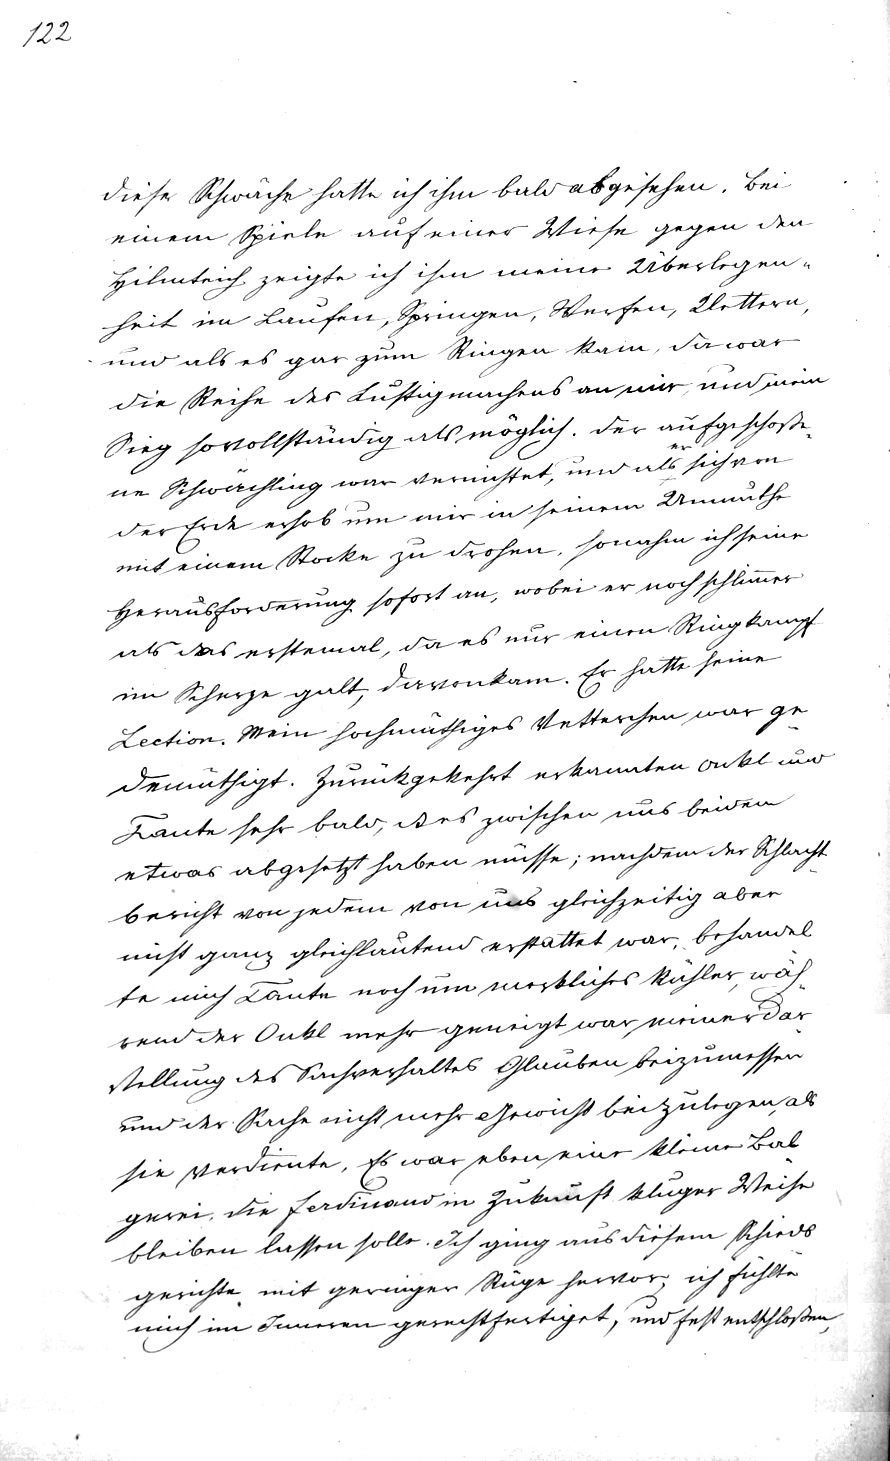 122
diese Schwäche hatte ich ihm bald abgesehen. Bei
einem Spiele auf einer Wiese gegen den
Hilmteich zeigte ich ihm meine Überlegen-
heit im Laufen, Springen, Werfen, Klettern,
und als es gar zum Ringen kam, da war
die Reihe des Lustigmachens an mir, und mein
Sieg so vollständig als möglich. Der aufgeschoße-
ne Schwächling war vernichtet, und als er sich von
der Erde erhob um mir in seinem Unmuthe
mit einem Stocke zu drohen, so nahm ich seine
Herausforderung sofort an, wobei er noch schlimmer
als das erstemal, da es nur einen Ringkampf
im Scherze galt, davonkam. Er hatte seine
Lection. Mein hochmüthiges Vetterchen war ge-
demüthigt. Zurückgekehrt erkannten Onkl und
Tante sehr bald, dß es zwischen uns beiden
etwas abgesetzt haben müsse; nachdem der Schlacht-
bericht von jedem von uns gleichzeitig aber
nicht ganz gleichlautend erstattet war, behandel-
te mich Tante noch um merkliches kühler, wäh-
rend der Onkl mehr geneigt war, meiner Dar-
stellung des Sachverhaltes Glauben beizumessen
und der Sache nicht mehr Gewicht beizulegen, als
sie verdiente. Es war eben eine kleine Bal-
gerei, die Ferdinand in Zukunft kluger Weise
bleiben lassen solle. Ich ging aus diesem Schieds-
gerichte mit geringer Rüge hervor; ich fühlte
mich im Inneren gerechtfertiget, und fest entschloßen,